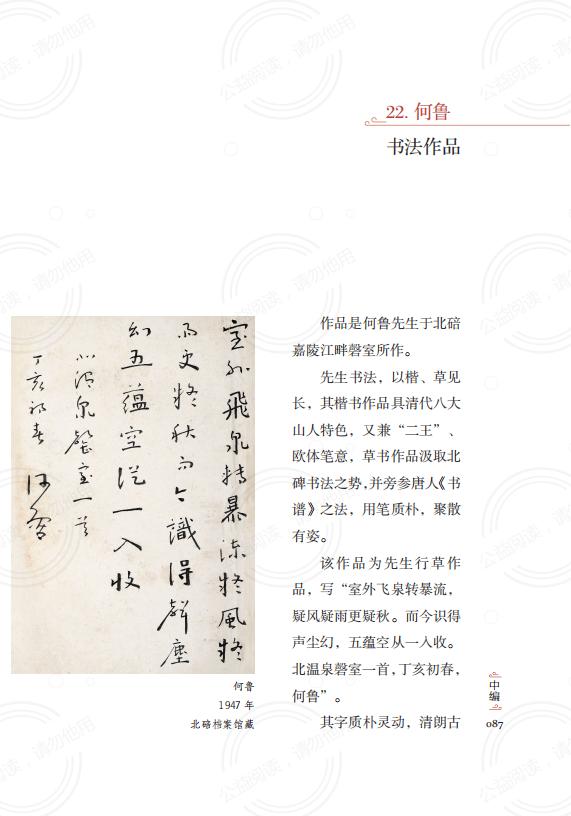 22. 何鲁
书法作品
室外飛泉轉暴流疑風疑
雨更疑秋而今識得聲塵
幻五蘊空從一入收
北温泉磬室一首
丁亥初春 何魯
何鲁
1947 年
北碚档案馆藏
作品是何鲁先生于北碚
嘉陵江畔磬室所作。
先生书法，以楷、草见
长，其楷书作品具清代八大
山人特色，又兼“二王”、
欧体笔意，草书作品汲取北
碑书法之势，并旁参唐人《书
谱》之法，用笔质朴，聚散
有姿。
该作品为先生行草作
品，写“室外飞泉转暴流，
疑风疑雨更疑秋。而今识得
声尘幻，五蕴空从一入收。
北温泉磬室一首，丁亥初春，
何鲁”。
其字质朴灵动，清朗古
中编
087
公益阅读，请勿他用